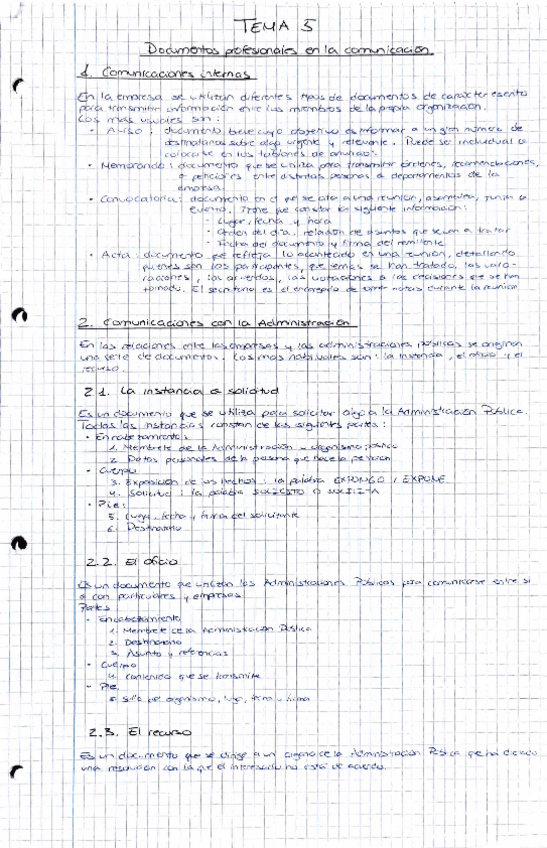 TEMA 5
Documentos profesionales en la comunicación
1. Comunicaciones internas
En la empresa se utilizan diferentes tipos de documentos de carácter escrito
para transmitir información entre los miembros de la propia organización.
Los más usuales son:
• Aviso: documento breve cuyo objetivo es informar a un gran número de
destinatarios sobre algo urgente y relevante. Puede ser individual o
colocarse en los tablones de anuncios.
• Memorando: documento que se utiliza para transmitir órdenes, recomendaciones,
o peticiones entre distintas personas o departamentos de la
empresa.
• Convocatoria: documento en el que se cita a una reunión, asamblea, junta o
evento. Tiene que constar la siguiente información:
- Lugar, fecha y hora
- Orden del día: relación de asuntos que se van a tratar
- Fecha del documento y firma del remitente
• Acta: documento que refleja lo acontecido en una reunión, detallando
quienes son los participantes, que temas se han tratado, las
los acuerdos, las votaciones o las decisiones que se han
tomado. El secretario es el encargado de tomar notas durante la reunión
2. Comunicaciones con la Administración
En las relaciones entre las empresas y las administraciones públicas se originan
una serie de documentos. Los más habituales son: la instancia, el oficio y el
recurso.
2.1. La instancia o solicitud
Es un documento que se utiliza para solicitar algo a la Administración Pública.
Todas las instancias constan de las siguientes partes:
• Encabezamiento:
1. Membrete de la Administración - organismo público
2. Datos personales de la persona que hace la petición
• Cuerpo
3. Exposición de los hechos: la palabra EXPONGO / EXPONE
4. Solicitud: la palabra SOLICITO O SOLICITA
• Pie:
5. Lugar, fecha y firma del solicitante
6. Destinatario
2.2. El oficio
Es un documento que utilizan las Administraciones Públicas para comunicarse entre sí
o con particulares y empresas
Partes
• Encabezamiento
1. Membrete de la Administración Pública
2. Destinatario
3. Asunto y referencias
• Cuerpo
4. Contenido que se transmite
• Pie
5. Sello del organismo, lugar, fecha y firma
2.3. El recurso
Es un documento que se dirige a un órgano de la Administración Pública que ha dictado
una resolución con la que el interesado no está de acuerdo.